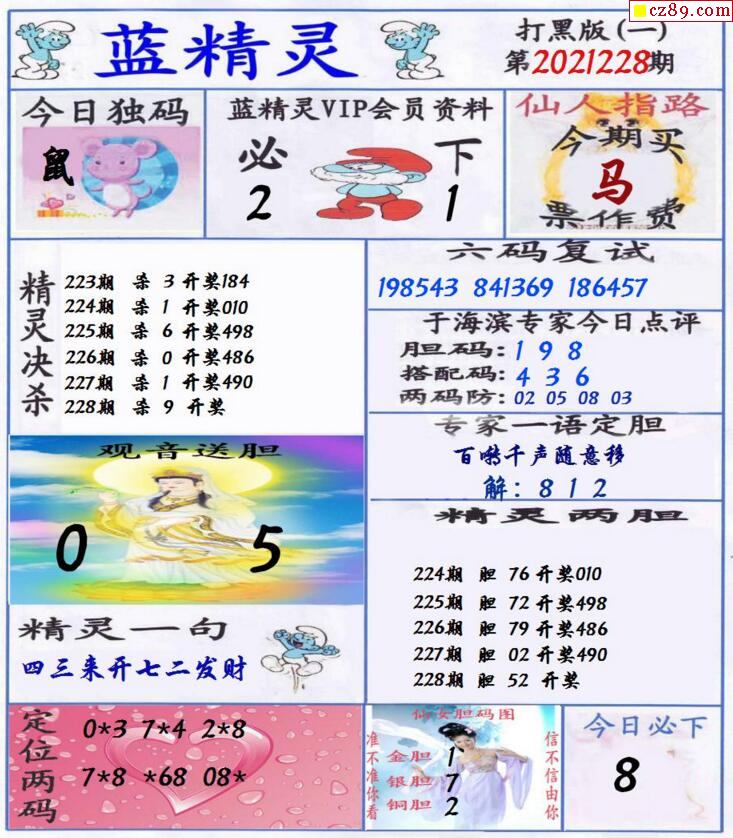 cz89.com
蓝精灵
打黑版(一)
第2021228期
今日独码
鼠
蓝精灵VIP会员资料
必 下
2 1
仙人指路
今期买
马
票作费
精灵决杀
223期 杀 3 开奖184
224期 杀 1 开奖010
225期 杀 6 开奖498
226期 杀 0 开奖486
227期 杀 1 开奖490
228期 杀 9 开奖
六码复试
198543 841369 186457
于海滨专家今日点评
胆码: 1 9 8
搭配码: 4 3 6
两码防: 02 05 08 03
专家一语定胆
百啭千声随意移
解: 8 1 2
观音送胆
0 5
精灵两胆
224期 胆 76 开奖010
225期 胆 72 开奖498
226期 胆 79 开奖486
227期 胆 02 开奖490
228期 胆 52 开奖
精灵一句
四三来开七二发财
定位两码
0*3 7*4 2*8
7*8 *68 08*
仙女胆码图
准不准你看
金胆 1
银胆 7
铜胆 2
信不信由你
今日必下
8